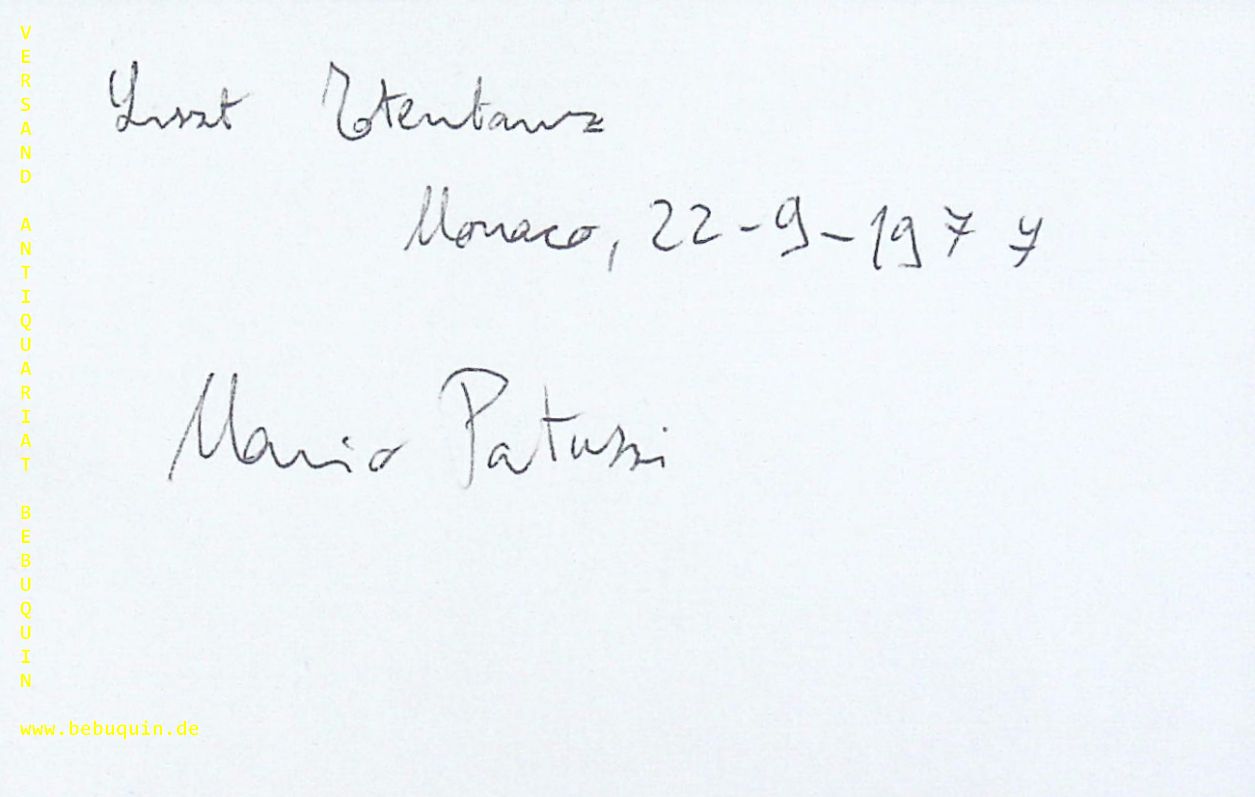 Liszt Totentanz
Monaco, 22-9-1977
Mario Patuzzi
VERSAND ANTIQUARIAT BEBUQUIN
www.bebuquin.de